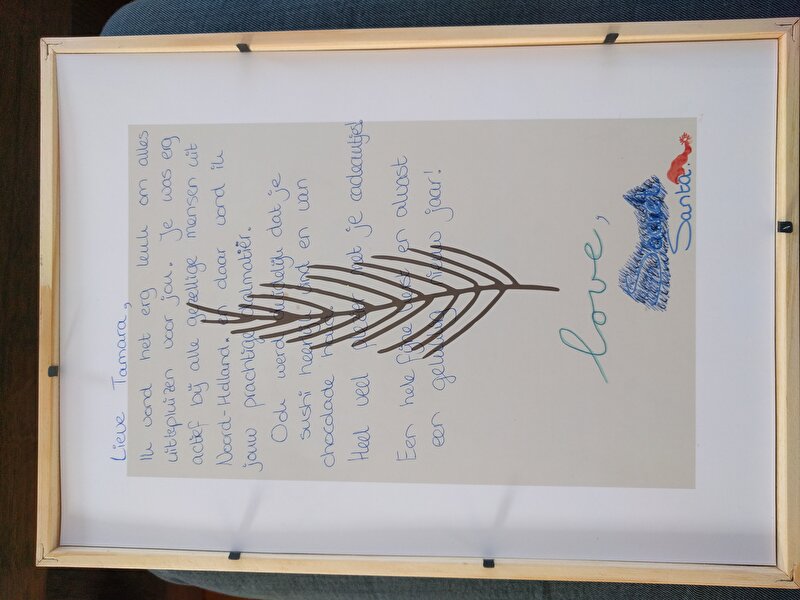 Lieve Tamara,
Ik vond het erg leuk om alles
uittepluizen voor jou. Je was erg
actief bij alle gezellige mensen uit
Noord-Holland. en daar vond ik
jouw prachtige
Ook werd duidelijk dat je
sushi heerlijk vond en van
chocolade
Heel veel plezier met je cadeautjes!
Een hele fijne kerst en alvast
een gelukkig nieuw jaar!
love,
Santa.